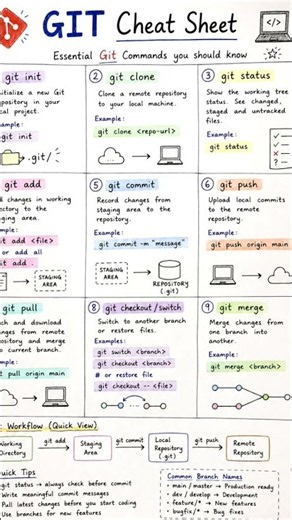 GIT Cheat Sheet
</>
Essential Git Commands you should know
git init
a new Git
in your
project.
git init
.git/
② git clone
Clone a remote repository
to your local machine.
Example:
git clone <repo-url>
③ git status
Show the working tree
status. See changed,
staged and untracked
files.
Example:
git status
git add
changes in working
to the
area.
add <file>
or add all
add .
STAGING
AREA
⑤ git commit
Record changes from
staging area to the
repository.
Example:
git commit -m "message"
STAGING
AREA
REPOSITORY
(.git)
⑥ git push
Upload local commits
to the remote
repository.
Example:
git push origin main
pull
and download
changes from remote
and merge
current branch.
pull origin main
⑧ git checkout/switch
Switch to another branch
or restore files.
Example:
git switch <branch>
git checkout <branch>
# or restore file
git checkout -- <file>
⑨ git merge
Merge changes from
one branch into
another.
Example:
git merge <branch>
Workflow (Quick View)
Working
Directory
git add
Staging
Area
git commit
Local
Repository
(.git)
git push
Remote
Repository
Quick Tips
git status → always check before commit
Write meaningful commit messages
Pull latest changes before you start coding
Use branches for new features
Common Branch Names
• main / master → Production ready
• dev / develop → Development
• feature/* → New features
• bugfix/* → Bug fixes